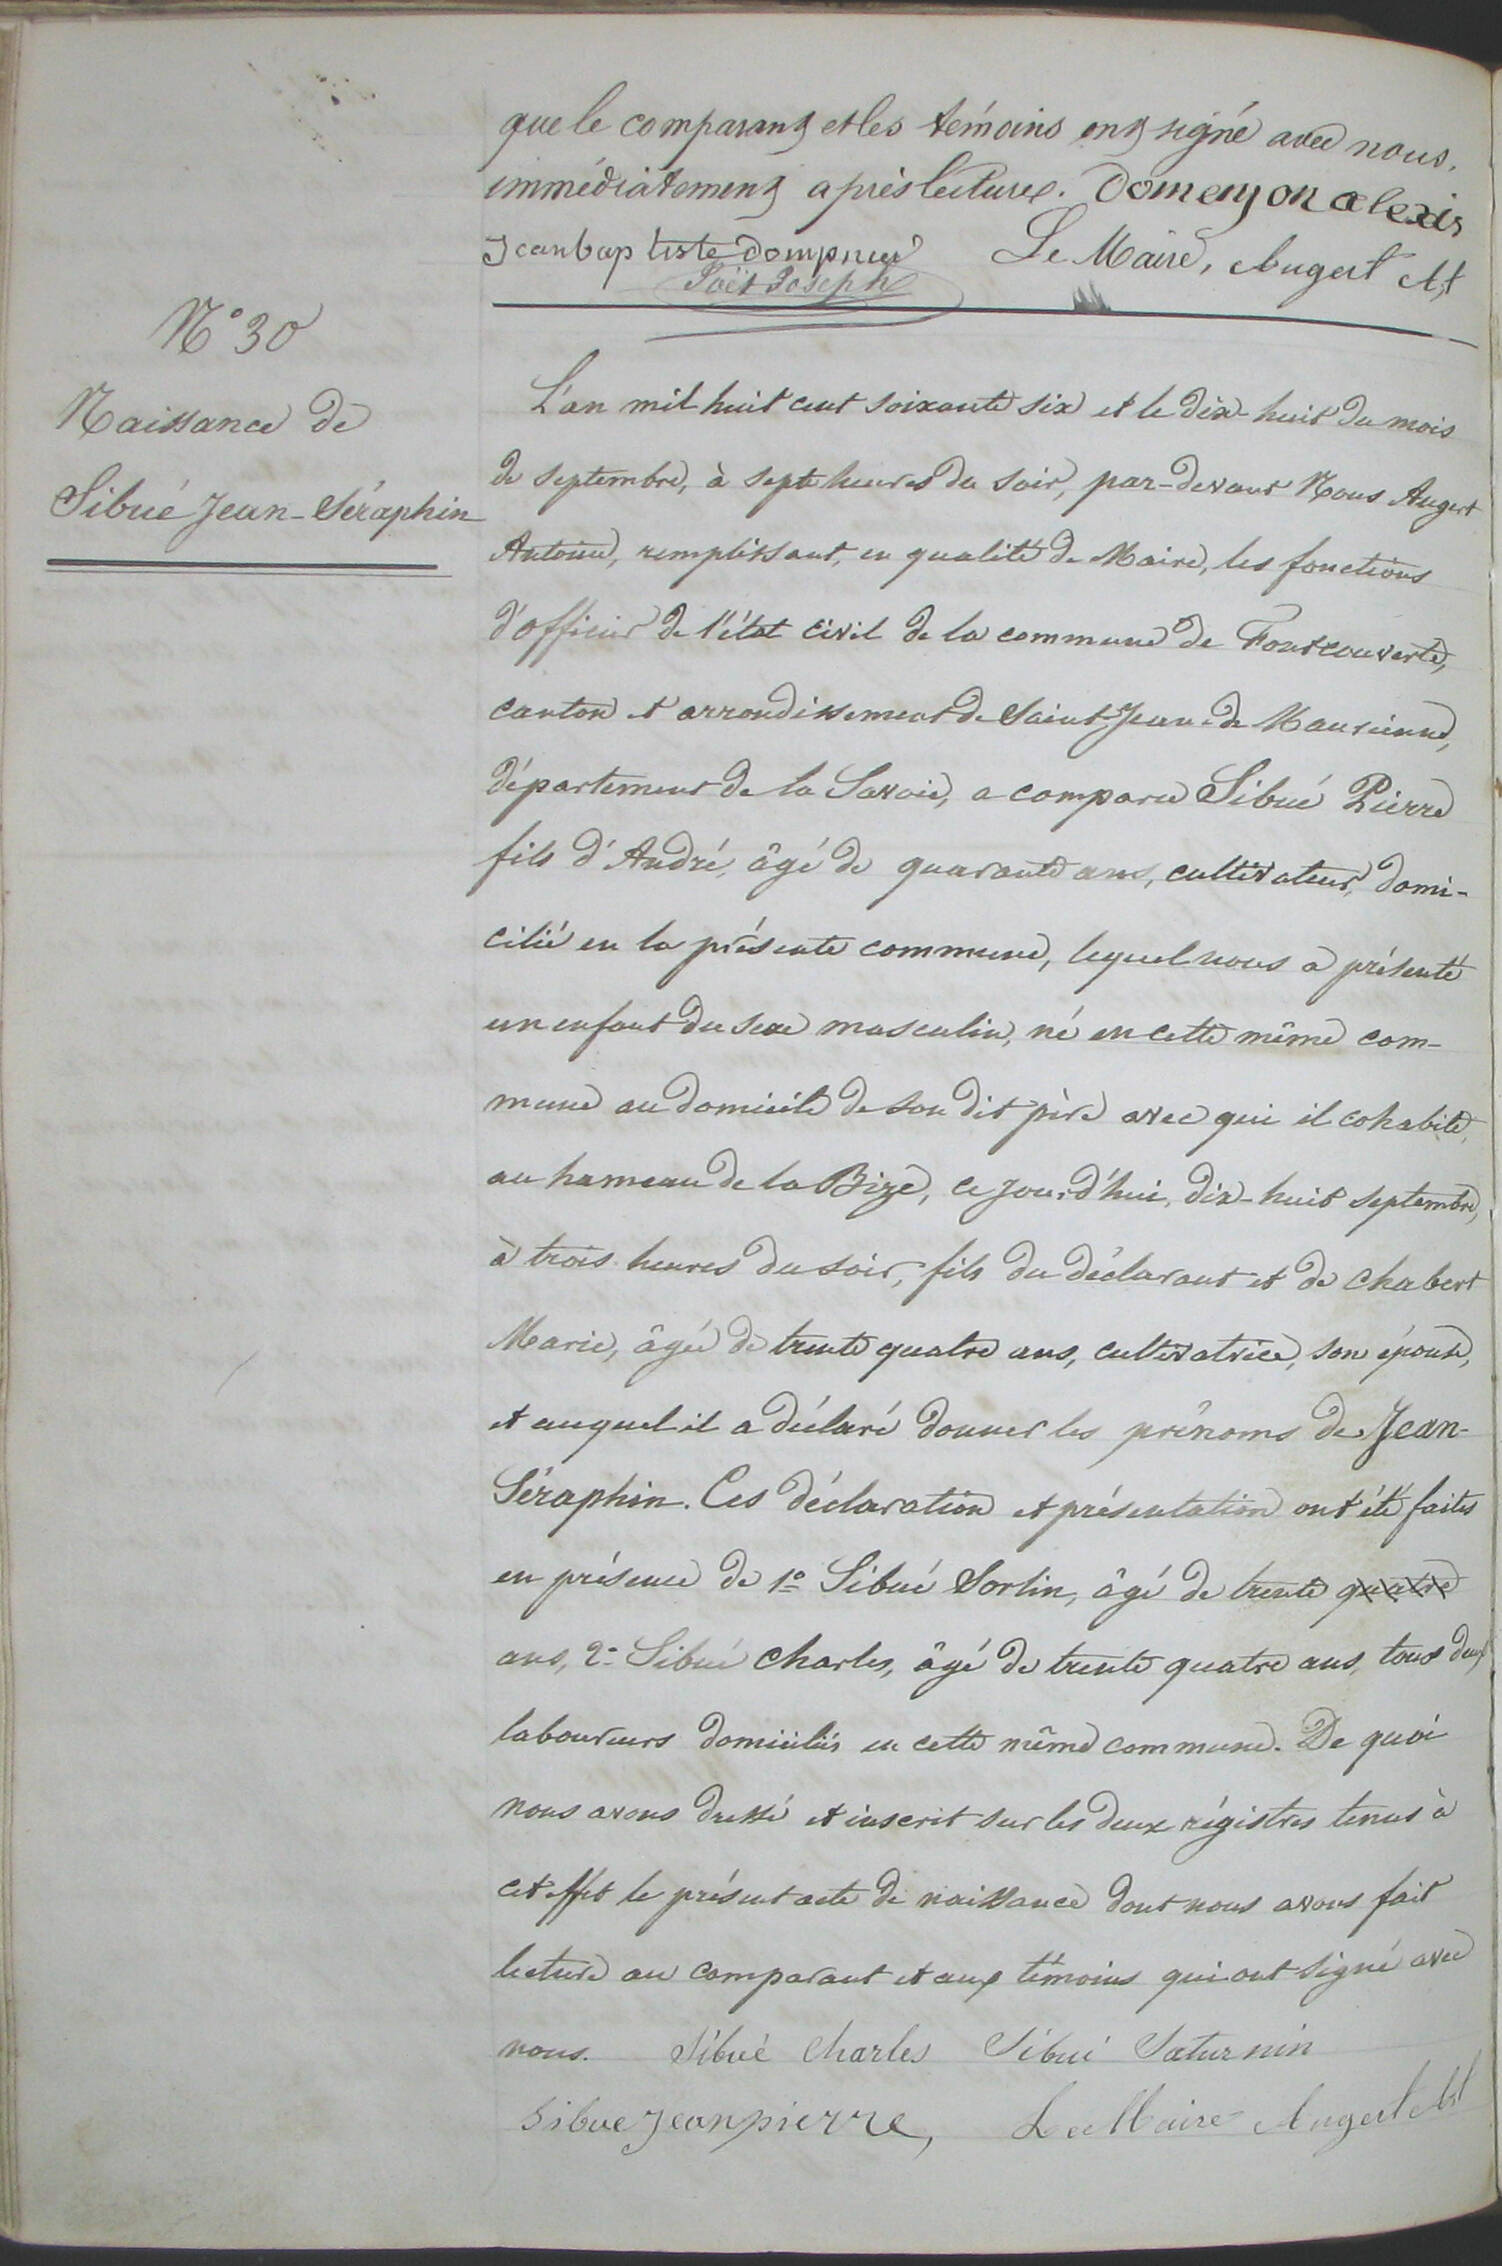 que le comparant et les témoins ont signé avec nous.
immédiatement après lecture. Domenjon alexis
Jeanbaptiste dompnier Le Maire, Augert At
Poët Joseph
N° 30
Naissance de
Sibué Jean-Séraphin
L'an mil huit cent soixante six et le dix-huit du mois
de septembre, à sept heures du soir, par-devant Nous Augert
Antoine, remplissant, en qualité de Maire, les fonctions
d'officier de l'état civil de la commune de Fontcouverte,
canton et arrondissement de Saint-Jean-de Maurienne,
département de la Savoie, a comparu Sibué Pierre
fils d'André, âgé de quarante ans, cultivateur, domi-
cilié en la présente commune, lequel nous a présenté
un enfant du sexe masculin, né en cette même com-
mune au domicile de son dit père avec qui il cohabite,
au hameau de la Bize, ce jourd'hui, dix-huit septembre,
à trois heures du soir, fils du déclarant et de Chabert
Marie, âgée de trente quatre ans, cultivatrice, son épouse,
et auquel il a déclaré donner les prénoms de Jean-
Séraphin. Ces déclaration et présentation ont été faites
en présence de 1° Sibué Sorlin, âgé de trente quatre
ans, 2° Sibué Charles, âgé de trente quatre ans, tous deux
laboureurs domiciliés en cette même commune. De quoi
nous avons dressé et inscrit sur les deux régistres tenus à
cet effet le présent acte de naissance dont nous avons fait
lecture au comparant et aux témoins qui ont signé avec
nous. Sibué Charles Sibué Saturnin
Sibue jeanpierre, Le Maire Augert At